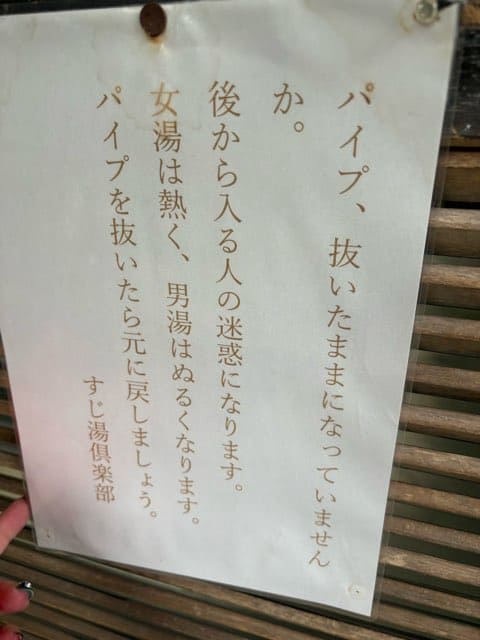 パイプ、抜いたままになっていません
か。
後から入る人の迷惑になります。
女湯は熱く、男湯はぬるくなります。
パイプを抜いたら元に戻しましょう。
すじ湯倶楽部